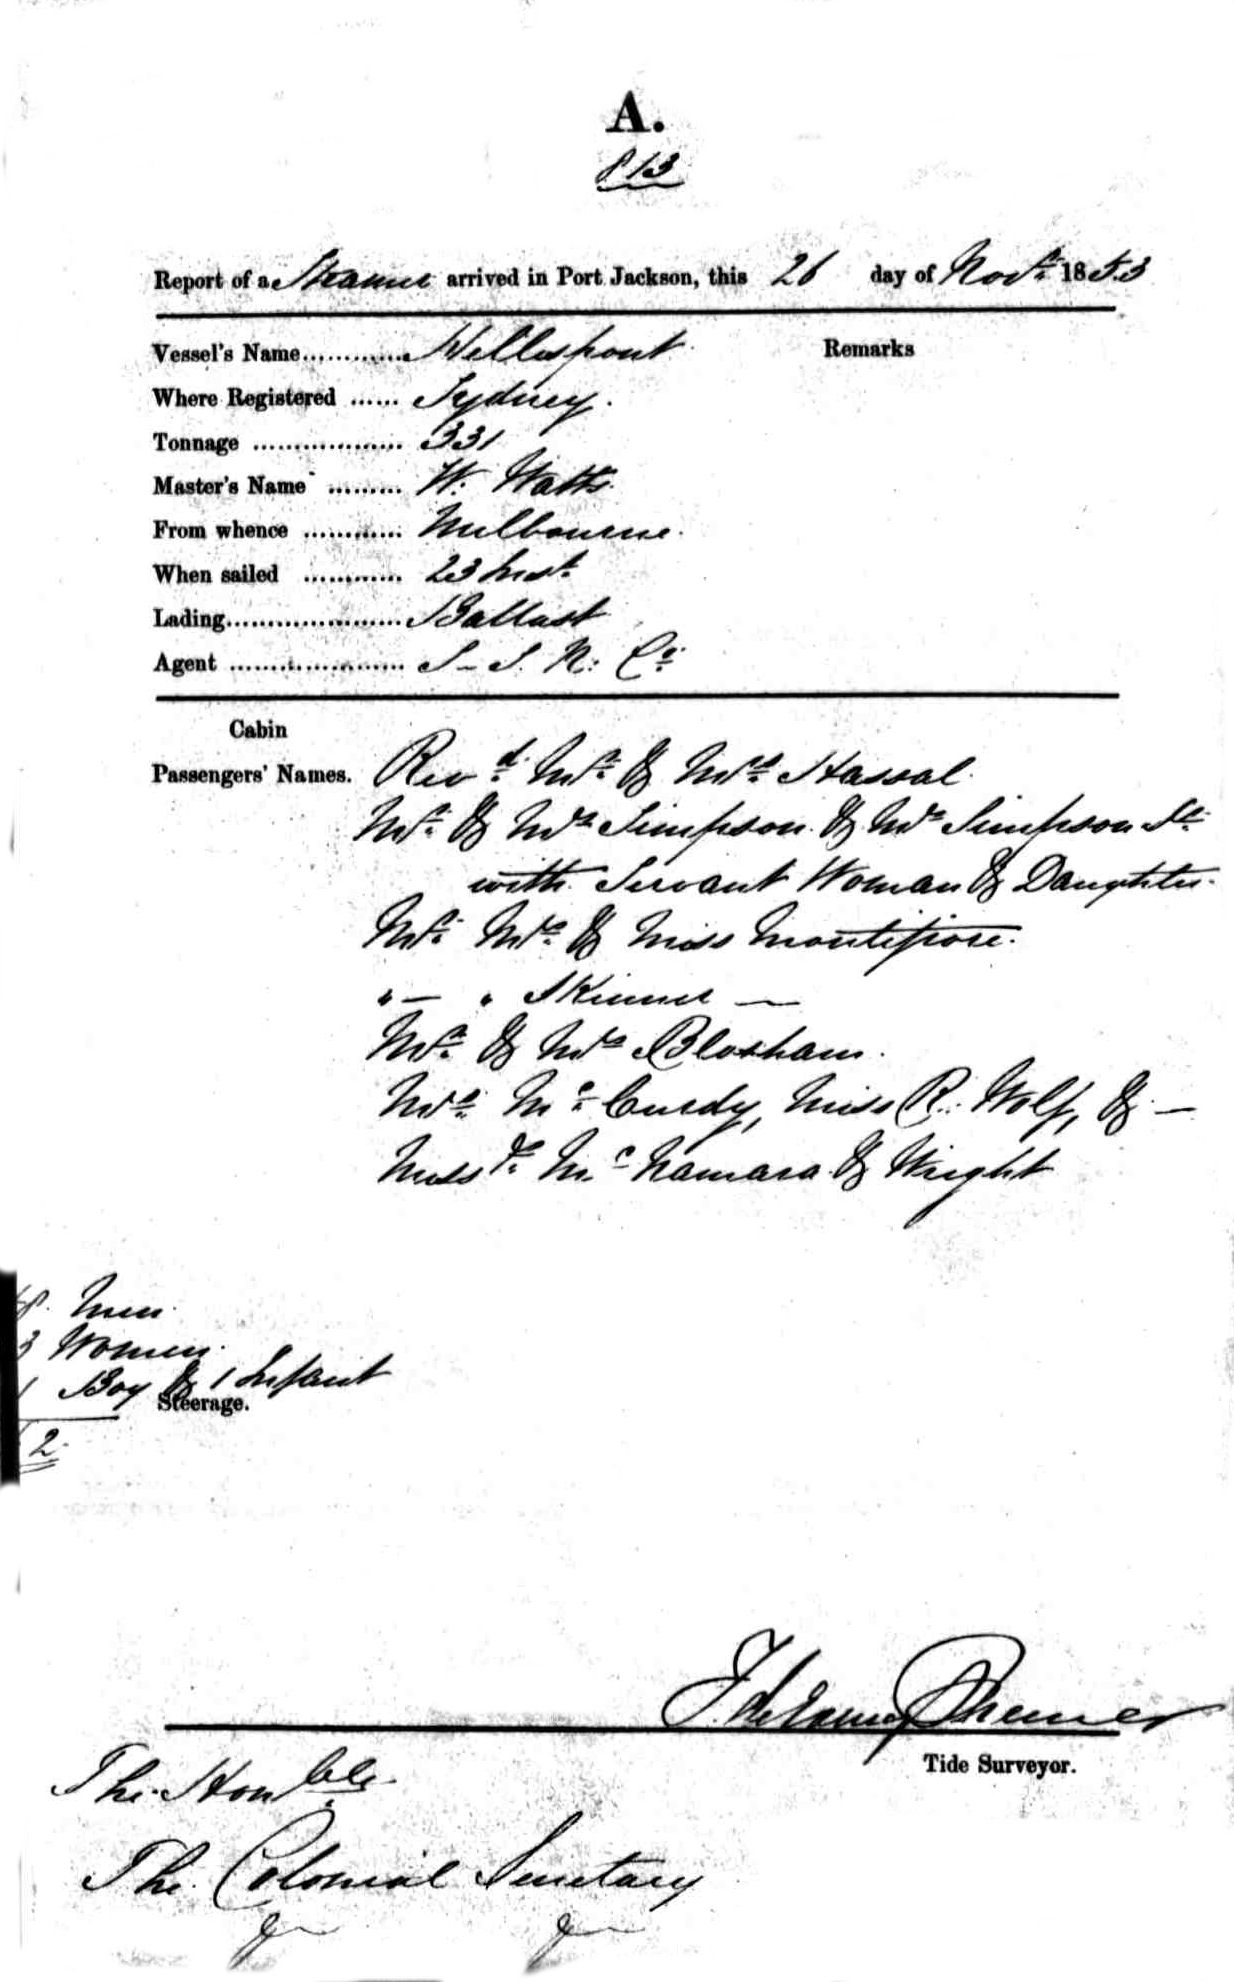 A.
813
Report of a Steamer arrived in Port Jackson, this 26 day of Novr. 1853
Vessel's Name............. Hellespont Remarks
Where Registered ...... Sydney.
Tonnage .................. 331
Master's Name ......... W. Watts.
From whence ............ Melbourne.
When sailed ............ 23 Inst.
Lading..................... Ballast
Agent ..................... S. N. Co.
Cabin
Passengers' Names. Revd. Mr. & Mrs. Hassal.
Mr. & Mrs. Simpson & Mrs Simpson Sr.
with Servant Woman & Daughter.
Mr. Mrs. & Miss Montifiore.
" — " Skinner —
Mr. & Mrs Bloxham.
Mrs. Mc. Curdy, Miss R. Wolf, & —
Misses Mc Namara & Wright
8. Men.
3 Women.
1 Boy & 1 Infant
Steerage.
12.
Tide Surveyor.
The Honble.
The Colonial Secretary